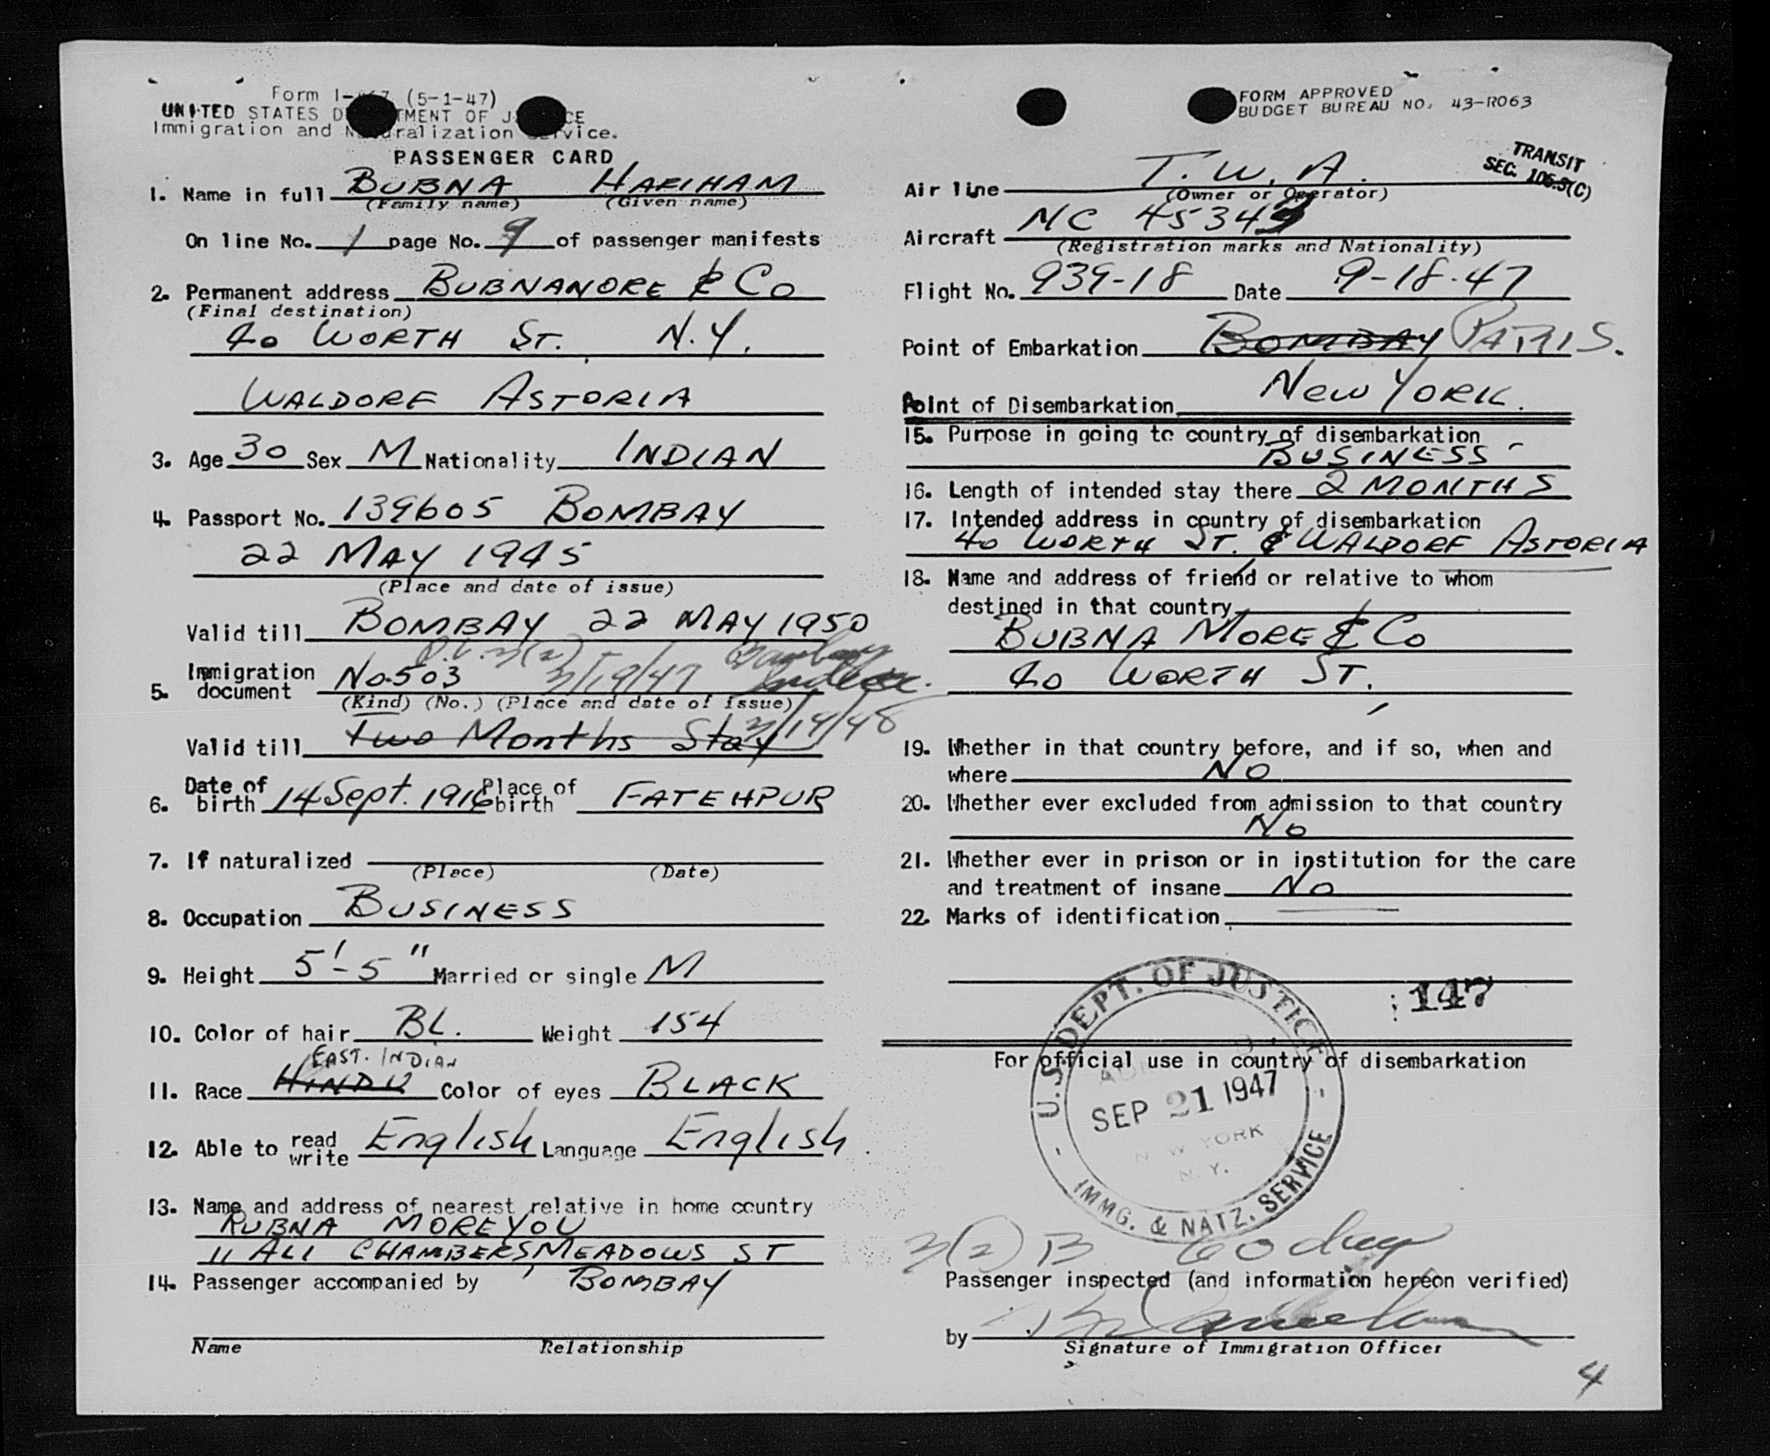 Form I- (5-1-47)
UNITED STATES DEPARTMENT OF JUSTICE
Immigration and Naturalization Service.
PASSENGER CARD
1. Name in full BUBNA HARIHAM
(Family name) (Given name)
On line No. 1 page No. 9 of passenger manifests
2. Permanent address BUBNAMORE & Co
(Final destination)
40 WORTH ST. N.Y.
WALDORF ASTORIA
3. Age 30 Sex M Nationality INDIAN
4. Passport No. 139605 BOMBAY
22 MAY 1945
(Place and date of issue)
Valid till BOMBAY 22 MAY 1950
3(2)
5. Immigration document No.503 3/19/47 Bombay India.
(Kind) (No.) (Place and date of issue)
Valid till Two Months Stay 3/19/48
6. Date of birth 14 Sept. 1916 Place of birth FATEHPUR
7. If naturalized
(Place) (Date)
8. Occupation BUSINESS
9. Height 5'-5" Married or single M
10. Color of hair BL. Weight 154
EAST. INDIAN
11. Race HINDU Color of eyes BLACK
12. Able to read write English Language English
13. Name and address of nearest relative in home country
BUBNA MOREYOU
11 ALI CHAMBERS, MEADOWS ST
14. Passenger accompanied by BOMBAY
Name Relationship
FORM APPROVED
BUDGET BUREAU NO. 43-R063
TRANSIT
SEC. 105.3(C)
Air line T.W.A.
(Owner or Operator)
Aircraft NC 45343
(Registration marks and Nationality)
Flight No. 939-18 Date 9-18-47
Point of Embarkation BOMBAY PARIS.
Point of Disembarkation NEW YORK.
15. Purpose in going to country of disembarkation
BUSINESS
16. Length of intended stay there 2 MONTHS
17. Intended address in country of disembarkation
40 WORTH ST. & WALDORF ASTORIA
18. Name and address of friend or relative to whom
destined in that country
BUBNA MORE & Co
40 WORTH ST.
19. Whether in that country before, and if so, when and
where NO
20. Whether ever excluded from admission to that country
No
21. Whether ever in prison or in institution for the care
and treatment of insane No
22. Marks of identification
147
For official use in country of disembarkation
U.S. DEPT. OF JUSTICE
SEP 21 1947
NEW YORK
N.Y.
IMMG. & NATZ. SERVICE
3(2) B 60 days
Passenger inspected (and information hereon verified)
by
Signature of Immigration Officer
4